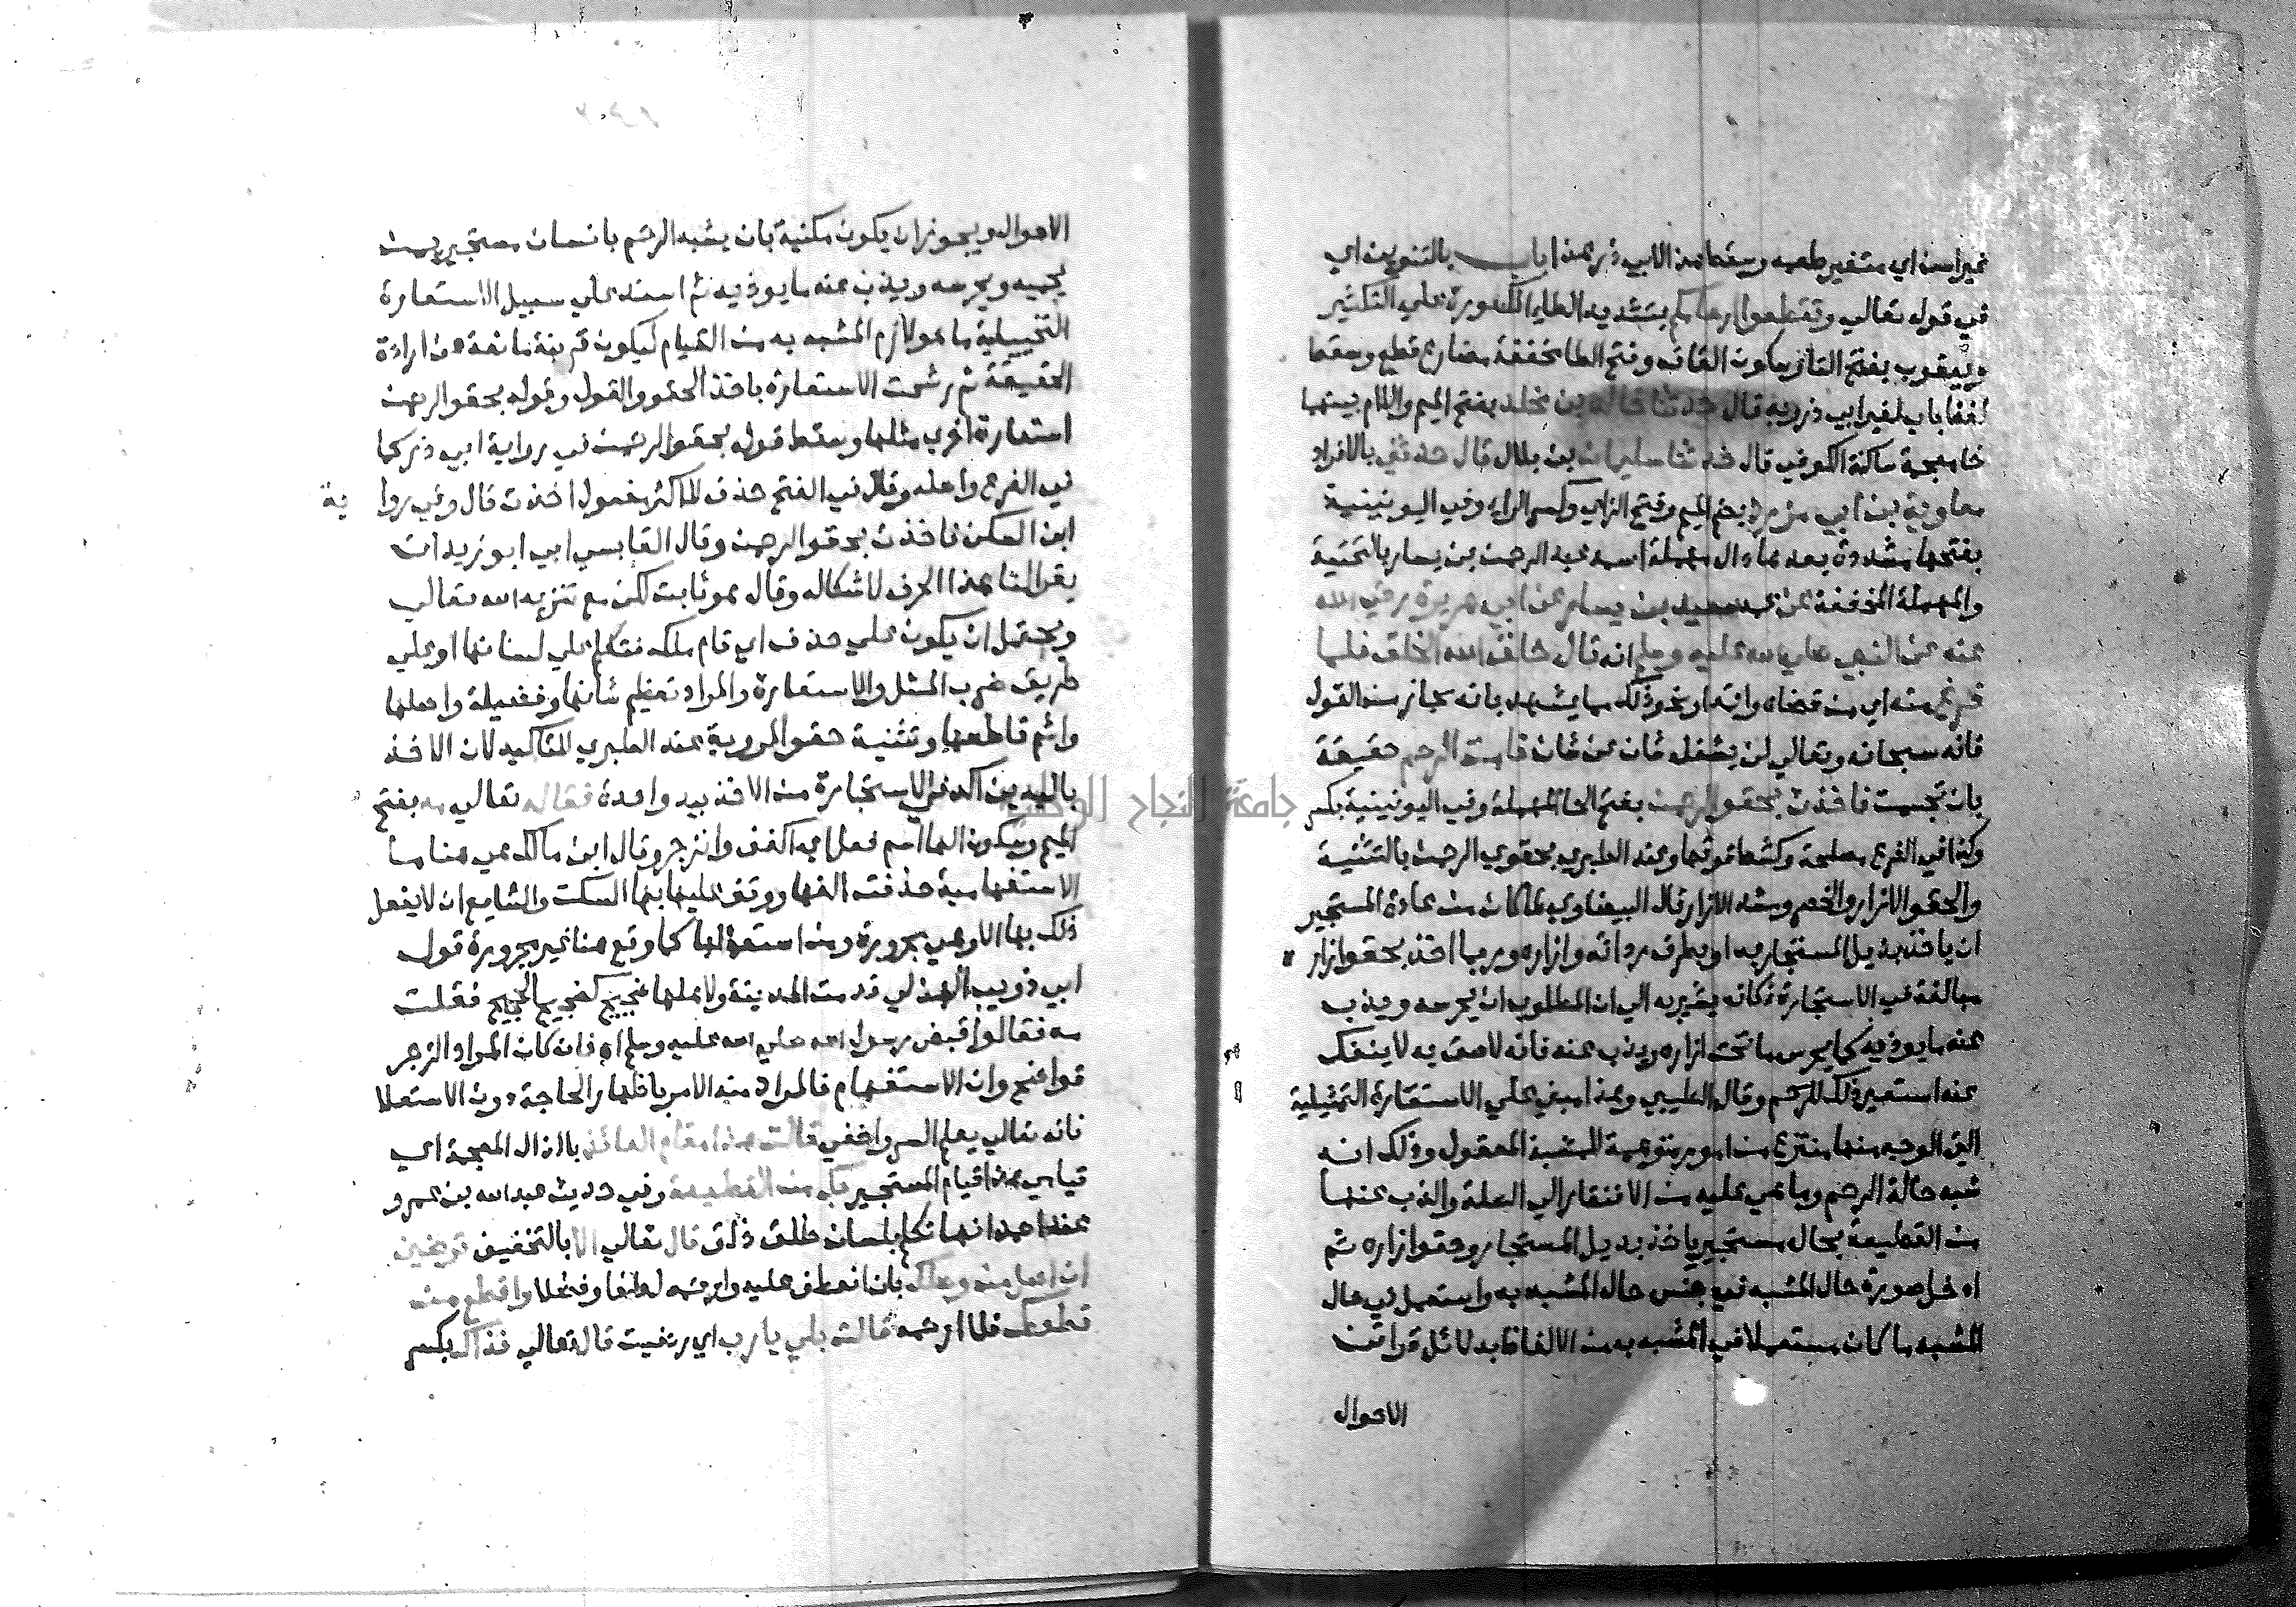 غير اسن اي متغير طعمه وسقط هذا لابي ذر هذا باب بالتنوين اي
في قوله تعالي وتقطعوا ارحامكم بتشديد الطاء المكسورة علي التكثير
ويعقوب بفتح التاء وسكون القاف وفتح الطا مخففة مضارع قطع وسقط
لفظ باب لغير ابي ذر وبه قال حدثنا خالد بن مخلد بفتح الميم واللام بينهما
خا معجمة ساكنة الكوفي قال حدثنا سليمان بن بلال قال حدثني بالافراد
معاوية بن ابي مزرد بضم الميم وفتح الزاي وكسر الراء وفي اليونينية
بفتحها مشددة بعدها دال مهملة اسمه عبد الرحمن بن يسار بالتحتية
والمهملة المخففة عن عمه سعيد بن يسار عن ابي هريرة رضي الله
عنه عن النبي صلي الله عليه وسلم انه قال خلق الله الخلق فلما
فرغ منه اي من قضاه واتمه او نحو ذلك مما يشهد بانه مجاز من القول
فانه سبحانه وتعالي لن يشغله شان عن شان قامت الرحم حقيقة
بان تجسمت فاخذت بحقو الرحمن بفتح الحا المهملة وفي اليونينية بكسر
وكذا في الفرع مصلحة وكشط فوقها وعند الطبري بحقوي الرحمن بالتثنية
والحقو الازار والخصر ومشد الازار قال البيضاوي لما كان من عادة المستجير
ان ياخذ بذيل المستجار به او بطرف ردائه وازاره وربما اخذ بحقو ازاره
مبالغة في الاستجارة فكانه يشير به الي ان المطلوب ان يحرسه ويذب
عنه ما يوذيه كما يحرس ما تحت ازاره ويذب عنه فانه لاصق به لا ينفك
عنه استعير ذلك للرحم وقال الطيبي وهذا مبني علي الاستعارة التمثيلية
التي الوجه منها منتزع من امور متوهمة للمشبه المعقول وذلك انه
شبه حالة الرحم وما هي عليه من الافتقار الي الصلة والذب عنها
من القطيعة بحال مستجير ياخذ بذيل المستجار وحقو ازاره ثم
ادخل صورة حال المشبه في جنس حال المشبه به واستعمل في حال
المشبه ما كان مستعملا في المشبه به من الالفاظ بدلائل قرائن
الاحوال
الاحوال ويجوز ان يكون مكنية بان يشبه الرحم بانسان مستجير بمن
يحميه ويحرسه ويذب عنه ما يوذيه ثم اسند علي سبيل الاستعارة
التخييلية ما هو لازم المشبه به من القيام ليكون قرينة مانعة عن ارادة
الحقيقة ثم رشحت الاستعارة باخذ الحقو والقول وقوله بحقو الرحمن
استعارة اخري مثلها وسقط قوله بحقو الرحمن في رواية ابي ذر كما
في الفرع واصله وقال في الفتح حذف للاكثر مفعول اخذت قال وفي رواية
ابن السكن فاخذت بحقو الرحمن وقال القابسي ابي ابو زيد ان
يقرا لنا هذا الحرف لاشكاله وقال هو ثابت لكن مع تنزيه الله تعالي
ويحتمل ان يكون علي حذف اي قام ملك فتكلم علي لسانها او علي
طريق ضرب المثل والاستعارة والمراد تعظيم شانها وفضيلة واصلها
واثم قاطعها وتثنية حقو المروية عند الطبري للتاكيد لان الاخذ
باليدين اكد في الاستجارة من الاخذ بيد واحدة فقال له تعالي مه بفتح
الميم وسكون الها اسم فعل اي اكفف وانزجر وقال ابن مالك هي هنا ما
الاستفهامية حذفت الفها ووقف عليها بها السكت والشايع ان لا يفعل
ذلك بها الا وهي مجرورة ومن استعمالها كما وقع هنا غير مجرورة قول
ابي ذويب الهذلي قدمت المدينة ولاهلها ضجيج كضجيج الحجيج فقلت
مه فقالوا قبض رسول الله صلي الله عليه وسلم اه فان كان المراد الزجر
فواضح وان الاستفهام فالمراد منه الامر باظهار الحاجة دون الاستعلا
فانه تعالي يعلم السر واخفي قالت هذا مقام العائذ بالذال المعجمة اي
قيامي هذا قيام المستجير بك من القطيعة وفي حديث عبد الله بن عمرو
عند احمد انها تكلم بلسان طلق ذلق قال تعالي الا بالتخفيف ترضين
ان اصل من وصلك بان انعطف عليه وارحمه لطفا وفضلا واقطع من
قطعك فلا ارحمه قالت بلي يا رب اي رضيت قال تعالي فذاك بكسر
جامعة النجاح الوطنية